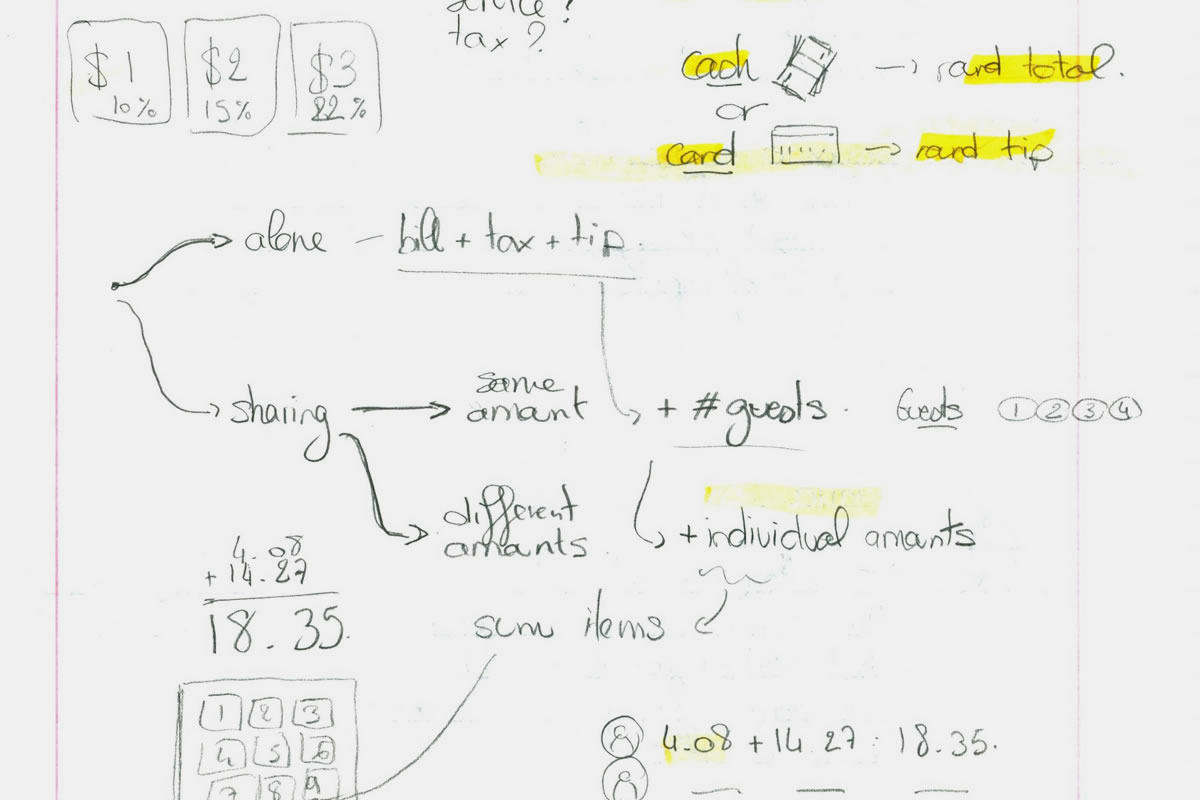 service?
tax?
$1 $2 $3
10% 15% 22%
cash → round total.
or
card → round tip
alone – bill + tax + tip.
sharing → same amount → + # guests. Guests 1 2 3 4
different amounts. + individual amounts
4.08
+ 14.27
18.35.
sum items
1 2 3
4 5 6
7 8 9
4.08 + 14.27 : 18.35.